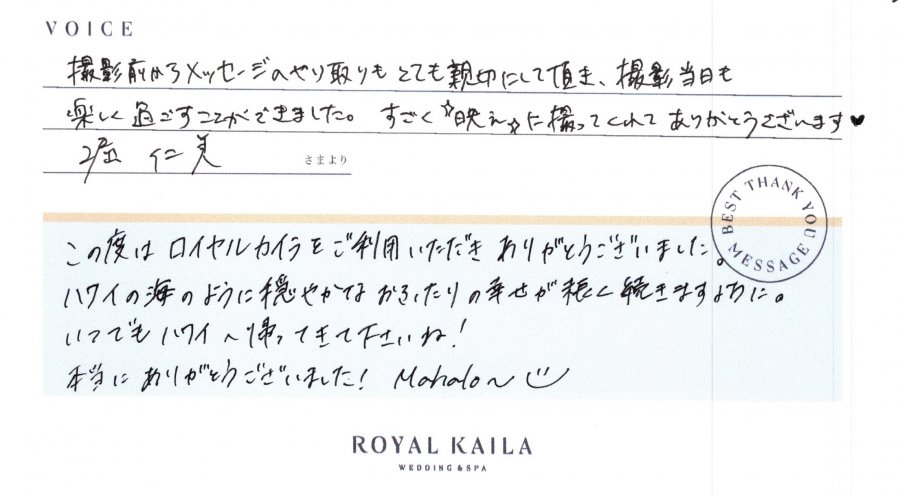 VOICE
撮影前からメッセージのやり取りもとても親切にして頂き、撮影当日も
楽しく過ごすことができました。すごく☆映え☆に撮ってくれてありがとうございます♥
堀 仁美 さまより
BEST THANK YOU MESSAGE
この度はロイヤルカイラをご利用いただきありがとうございました。
ハワイの海のように穏やかなおふたりの幸せが末長く続きますように。
いつでもハワイへ帰ってきて下さいね!
本当にありがとうございました! Mahalo~
ROYAL KAILA
WEDDING & SPA